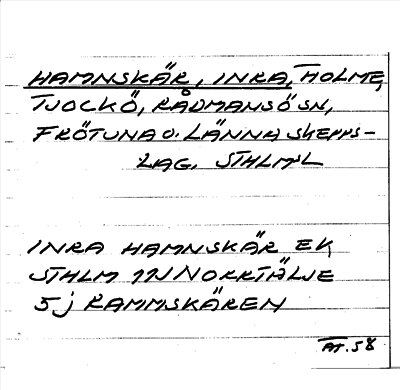 HAMNSKÄR, INRA, HOLME,
TJOCKÖ, RÅDMANSÖ SN,
FRÖTUNA O. LÄNNA SKEPPS-
LAG, STHLM:L
INRA HAMNSKÄR EK,
STHLM 11N NORRTÄLJE
5j RAMMSKÄREN
AT.58